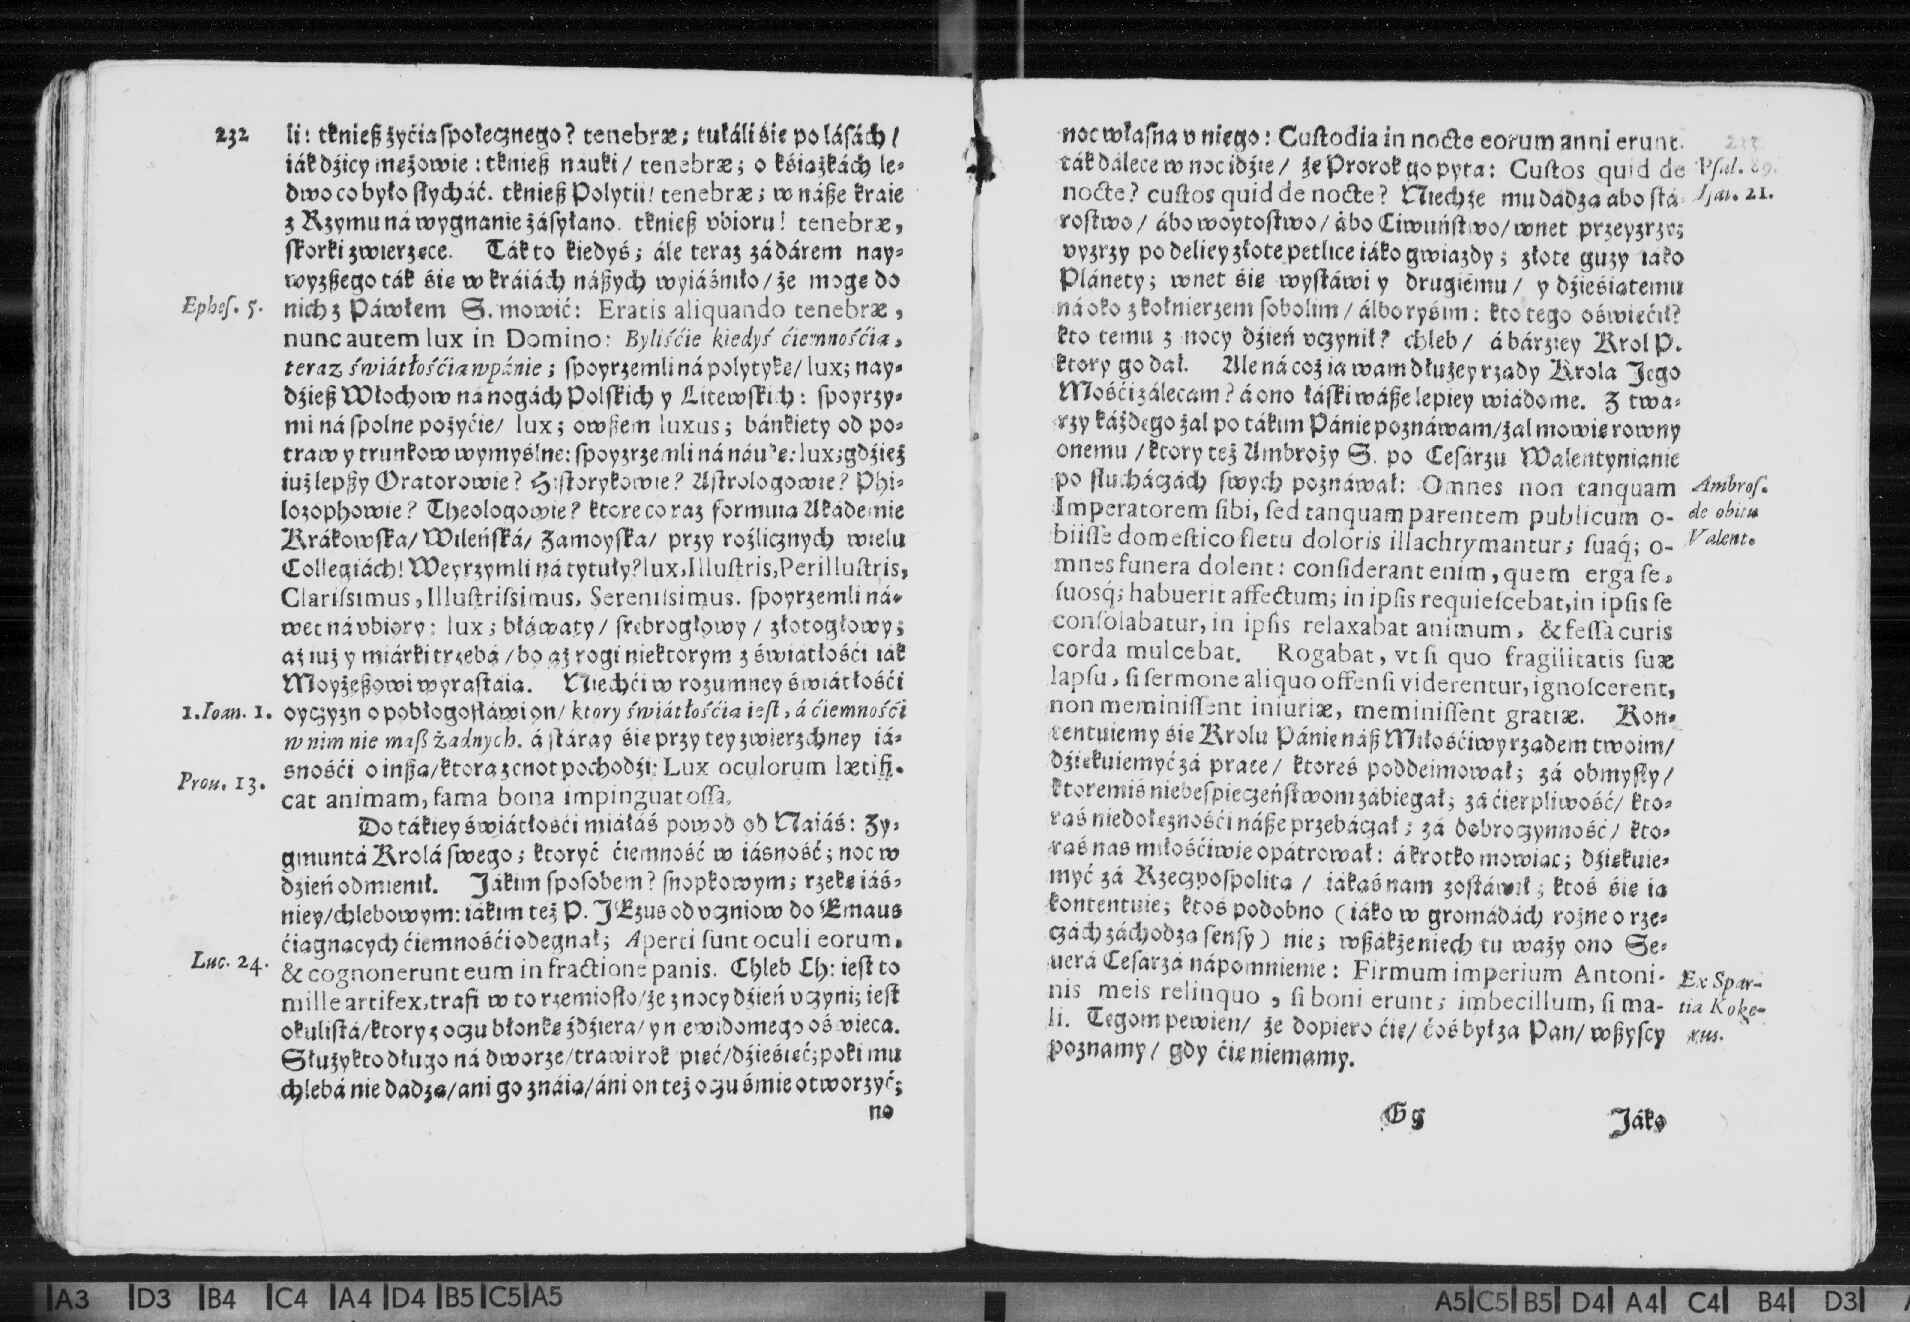 232
li: tknieß żyćia społecznego? tenebræ; tułáli śie po lásách /
iák dźicy mężowie: tknieß nauki / tenebræ; o kśiążkách le-
dwo co było słycháć. tknieß Polytii! tenebræ; w náße kraie
z Rzymu ná wygnanie zásyłano. tknieß vbioru! tenebræ,
skorki zwierzęce. Ták to kiedyś; ále teraz zá dárem nay-
wyzßego ták śie w kráiách náßych wyiáśniło / że mogę do
Ephes. 5.
nich z Páwłem S. mowić: Eratis aliquando tenebræ,
nunc autem lux in Domino: Byliśćie kiedyś ćiemnośćią,
teraz świátłośćią w pánie; spoyrzemli ná polytykę / lux; nay-
dźieß Włochow ná nogách Polskich y Litewskich: spoyrzy-
mi ná spolne pożyćie / lux; owßem luxus; bánkiety od po-
traw y trunkow wymyślne: spoyrzemli ná náukę: lux; gdźież
iuż lepßy Oratorowie? Historykowie? Astrologowie? Phi-
lozophowie? Theologowie? ktore co raz formuią Akádemie
Krákowska / Wileńska / Zamoyska / przy rożlicznych wielu
Collegiách! Weyrzymli ná tytuły? lux, Illustris, Perillustris,
Clarissimus, Illustrissimus, Serenissimus. spoyrzemli ná-
wet ná vbiory: lux; błáwaty / srebrogłowy / złotogłowy;
aż iuż y miárki trzebá / bo aż rogi niektorym z światłośći iák
Moyżeßowi wyrastáią. Niechći w rozumney świátłośći
1. Ioan. 1.
oyczyzno pobłogosłáwi on / ktory świátłośćią iest, á ćiemnośći
w nim nie maß żadnych. á stáray śie przy tey zwierzchney iá-
snośći o inßą / ktora z cnot pochodźi: Lux oculorum lætifi-
Prou. 13.
cat animam, fama bona impinguat ossa.
Do tákiey świátłośći miáłáś powod od Naiáś: Zy-
gmuntá Krolá swego; ktoryć ćiemność w iásność; noc w
dźień odmienił. Jákim sposobem? snopkowym; rzekę iáś-
niey / chlebowym: iákim też P. JEzus od vczniow do Emaus
ćiągnących ćiemnośći odegnał; Aperti sunt oculi eorum,
Luc. 24.
& cognouerunt eum in fractione panis. Chleb Ch: iest to
mille artifex, trafi w to rzemiosło / że z nocy dźień vczyni; iest
okulistá / ktory z oczu błonkę źdźiera / y niewidomego oświeca.
Służy kto długo ná dworze / trawi rok pięć / dźieśięć; poki mu
chlebá nie dadzą / ani go znáią / áni on też oczu śmie otworzyć;
no
noc własna v niego: Custodia in nocte eorum anni erunt.
Psal. 89.
ták dálece w noc idźie / że Prorok go pyta: Custos quid de
Isai. 21.
nocte? custos quid de nocte? Niechże mu dádzą abo stá-
rostwo / ábo woytostwo / ábo Ciwuństwo / wnet przeyzrzy;
vyzrzy po deliey złote petlice iáko gwiazdy; złote guzy iáko
Plánety; wnet śie wystáwi y drugiemu / y dźieśiątemu
ná oko z kołnierzem sobolim / álbo rysim: kto tego oświećił?
kto temu z nocy dźień vczynił? chleb / á bárziey Krol P.
ktory go dał. Ale ná coż ia wam dłużey rządy Krola Jego
Mośći zálecam? á ono łáski wáße lepiey wiádome. Z twa-
rzy káżdego żal po tákim Pánie poznáwam / żal mowię rowny
onemu / ktory też Ambroży S. po Cesarzu Walentynianie
Ambros.
de obitu
Valent.
po słucháczách swych poznáwał: Omnes non tanquam
Imperatorem sibi, sed tanquam parentem publicum o-
biisse domestico fletu doloris illachrymantur; suaq́; o-
mnes funera dolent: considerant enim, quem erga se,
suosq́; habuerit affectum; in ipsis requiescebat, in ipsis se
consolabatur, in ipsis relaxabat animum, & fessa curis
corda mulcebat. Rogabat, vt si quo fragilitatis suæ
lapsu, si sermone aliquo offensi viderentur, ignoscerent,
non meminissent iniuriæ, meminissent gratiæ. Kon-
tentuiemy śie Krolu Pánie náß Miłośćiwy rządem twoim /
dźiękuiemyć zá prace / ktoreś poddeimował; zá obmysły /
ktoremiś niebespieczeństwom zábiegał; zá ćierpliwość / kto-
rąś niedołężnośći náße przebáczał; zá dobroczynność / kto-
rąś nas miłośćiwie opátrował: á krotko mowiąc; dźiękuie-
myć zá Rzeczpospolitą / iákąś nam zostáwił; ktoś śie ią
kontentuie; ktoś podobno (iáko w gromádách rożne o rze-
czách záchodzą sensy) nie; wßákże niech tu waży ono Se-
uerá Cesarzá nápomnienie: Firmum imperium Antoni-
Ex Spar-
tia Koke-
xus.
nis meis relinquo, si boni erunt; imbecillum, si ma-
li. Tegom pewien / że dopiero ćię / ćoś był zá Pan / wßyscy
poznamy / gdy ćie niemamy.
Gg
Jáko
A3 D3 B4 C4 A4 D4 B5 C5 A5
A5 C5 B5 D4 A4 C4 B4 D3